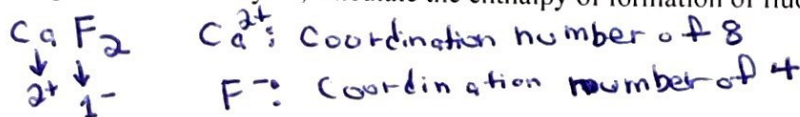 the enthalpy of formation of
CaF₂ Ca²⁺: Coordination number of 8
↓ ↓
2+ 1- F⁻: Coordination number of 4